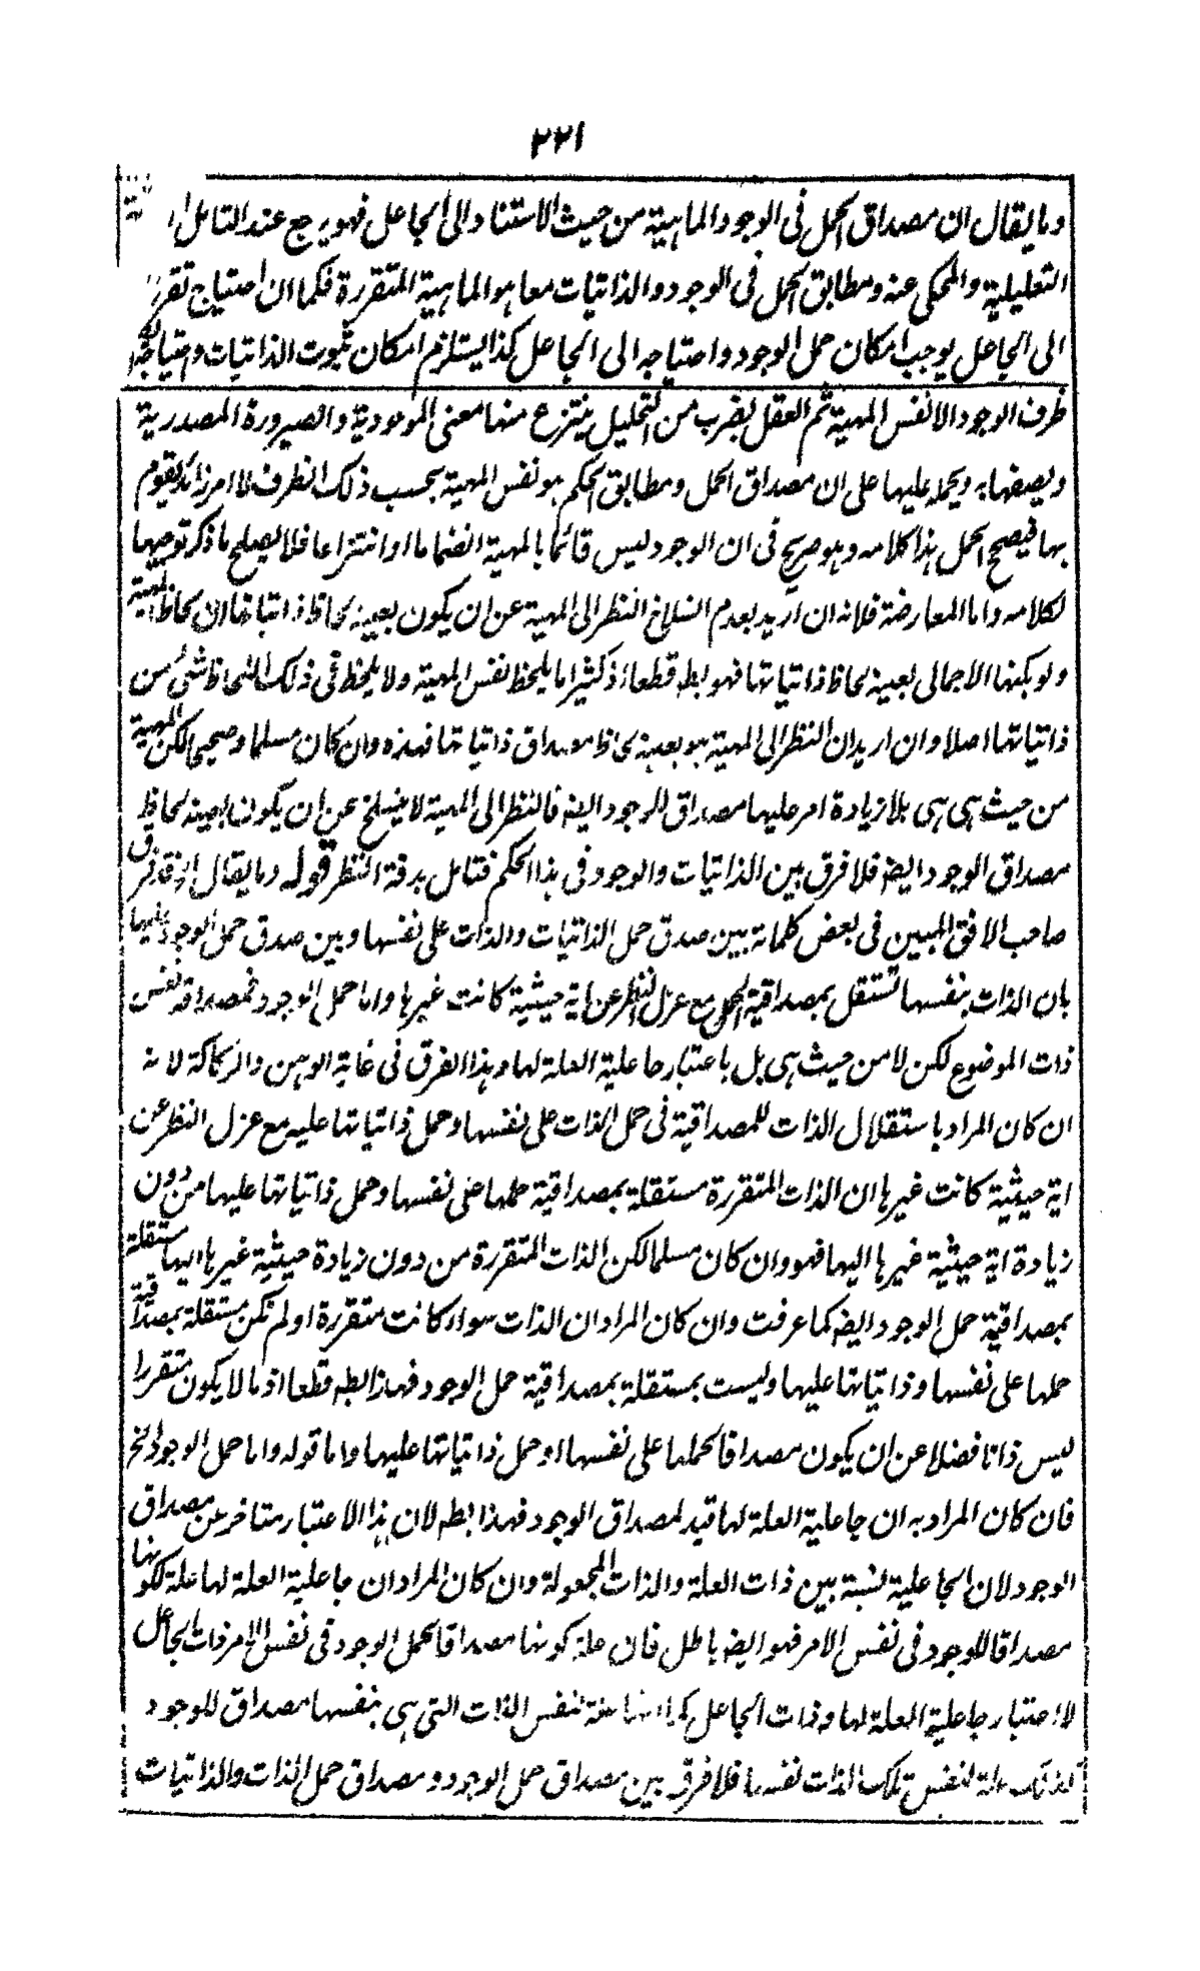 ٢٢١
وما يقال ان مصداق الحمل فى الوجود الماهية من حيث الاستناد الى الجاعل فهو يرجع عند التامل
التعليلية والمحكى عنه ومطابق الحمل فى الوجود والذاتيات معا هو الماهية المتقررة فكما ان احتياج تقرر
الى الجاعل يوجب امكان حمل الوجود واحتياجه الى الجاعل كذا يستلزم امكان ثبوت الذاتيات واحتياجه
ظرف الوجود الا نفس المهية ثم العقل بضرب من التحليل ينتزع منها معنى الموجودية والصيرورة المصدرية
ويصفها به ويحمله عليها على ان مصداق الحمل ومطابق الحكم هو نفس المهية بحسب ذلك الظرف لا امر زائد يقوم
بها فيصح الحمل هذا كلامه وهو صريح فى ان الوجود ليس قائما بالمهية انضماما او انتزاعا فلا يصلح ما ذكر توجيها
لكلامه واما المعارضة فلانه ان اريد بعدم انسلاخ النظر الى المهية عن ان يكون بعينه لحاظ ذاتياتها ان لحاظ المهية
ولو بكنهها الاجمالى بعينه لحاظ ذاتياتها فهو بط قطعا اذ كثيرا ما يلحظ نفس المهية ولا يلحظ فى ذلك اللحاظ شئ من
ذاتياتها اصلا وان اريد ان النظر الى المهية هو بعينه لحاظ مصداق ذاتياتها فهذه وان كان مسلما وصحيحا لكن المهية
من حيث هى هى بلا زيادة امر عليها مصداق الوجود ايضه فالنظر الى المهية لا ينسلخ عن ان يكون بعينه لحاظ
مصداق الوجود ايضه فلا فرق بين الذاتيات والوجود فى هذا الحكم فتامل بدقة النظر قوله وما يقال الخ قد فرق
صاحب الافق المبين فى بعض كلماته بين صدق حمل الذاتيات والذات على نفسها وبين صدق حمل الوجود عليها
بان الذات بنفسها تستقل بمصداقية الحمل مع عزل النظر عن اية حيثية كانت غيرها واما حمل الوجود فمصداقه نفس
ذات الموضوع لكن لا من حيث هى بل باعتبار جاعلية العلة لها وهذا الفرق فى غاية الوهن والركاكة لانه
ان كان المراد باستقلال الذات للمصداقية فى حمل الذات على نفسها وحمل ذاتياتها عليه مع عزل النظر عن
اية حيثية كانت غيرها ان الذات المتقررة مستقلة بمصداقية حملها على نفسها وحمل ذاتياتها عليها من دون
زيادة اية حيثية غيرها اليها فهو وان كان مسلما لكن الذات المتقررة من دون زيادة حيثية غيرها اليها مستقلة
بمصداقية حمل الوجود ايضه كما عرفت وان كان المراد ان الذات سواء كانت متقررة او لم تكن مستقلة بمصداقية
حملها على نفسها وذاتياتها عليها وليست بمستقلة بمصداقية حمل الوجود فهذا بط قطعا اذ ما لا يكون متقررا
ليس ذاتا فضلا عن ان يكون مصداقا لحملها على نفسها او حمل ذاتياتها عليها واما قوله واما حمل الوجود الخ
فان كان المراد به ان جاعلية العلة لها قيد لمصداق الوجود فهذا بط لان هذا الاعتبار متاخر عن مصداق
الوجود لان الجاعلية نسبة بين ذات العلة والذات المجعولة وان كان المراد ان جاعلية العلة لها علة لكونها
مصداقا للوجود فى نفس الامر فهو ايضه باطل فان علة كونها مصداقا لحمل الوجود فى نفس الامر ذات الجاعل
لا اعتبار جاعلية العلة لها وذات الجاعل كما انها علة لنفس الذات التى هى بنفسها مصداق للوجود
كذلك علة لنفس تلك الذات نفسها فلا فرق بين مصداق حمل الوجود ومصداق حمل الذات والذاتيات